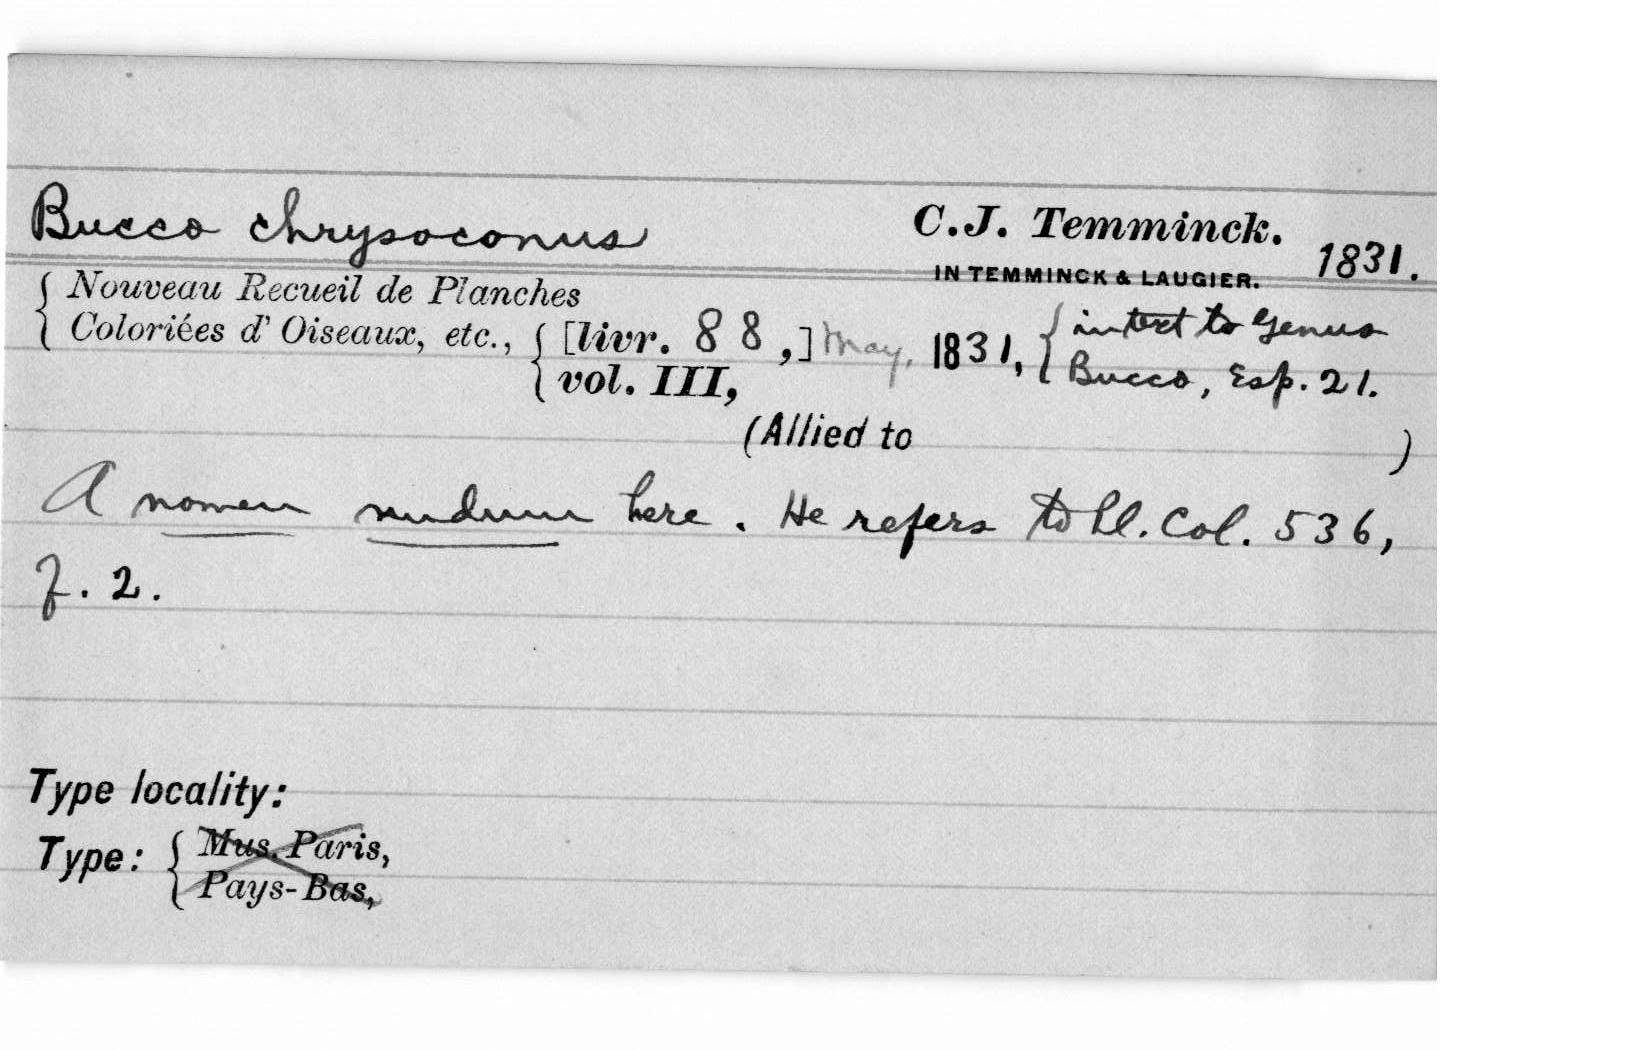 Bucco chrysoconus C.J. Temminck. 1831.
IN TEMMINCK & LAUGIER.
{ Nouveau Recueil de Planches
Coloriées d' Oiseaux, etc., { [livr. 88,] May, 1831, { in text to Genus
vol. III, Bucco, Esp. 21.
(Allied to )
A nomen nudum here. He refers to Pl. Col. 536,
f. 2.
Type locality:
Type: { Mus. Paris,
Pays-Bas,